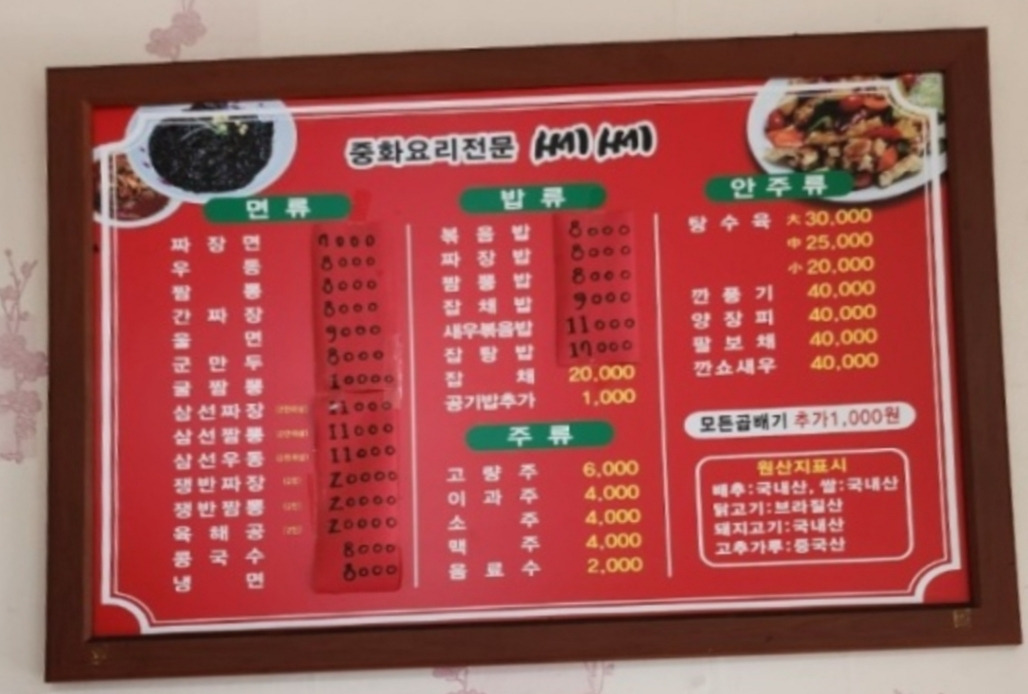 중화요리전문 쎄쎄
면류
짜장면 7000
우동 8000
짬뽕 8000
간짜장 8000
울면 9000
군만두 8000
굴짬뽕 10000
삼선짜장 11000
삼선짬뽕 11000
삼선우동 11000
쟁반짜장 20000
쟁반짬뽕 20000
육해공 20000
콩국수 8000
냉면 8000
밥류
볶음밥 8000
짜장밥 8000
짬뽕밥 8000
잡채밥 9000
새우볶음밥 11000
잡탕밥 17000
잡채 20,000
공기밥추가 1,000
주류
고량주 6,000
이과주 4,000
소주 4,000
맥주 4,000
음료수 2,000
안주류
탕수육 大 30,000
中 25,000
小 20,000
깐풍기 40,000
양장피 40,000
팔보채 40,000
깐쇼새우 40,000
모든곱배기 추가1,000원
원산지표시
배추:국내산, 쌀:국내산
닭고기:브라질산
돼지고기:국내산
고추가루:중국산